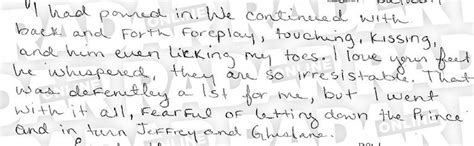 "I had poured in. We continued with
back and forth foreplay, touching, kissing,
and him even licking my toes. I love your feet
he whispered, they are so irresistable. That
was defenetley a 1st for me, but I went
with it all, fearful of letting down the Prince
and in turn Jeffrey and Ghislane.